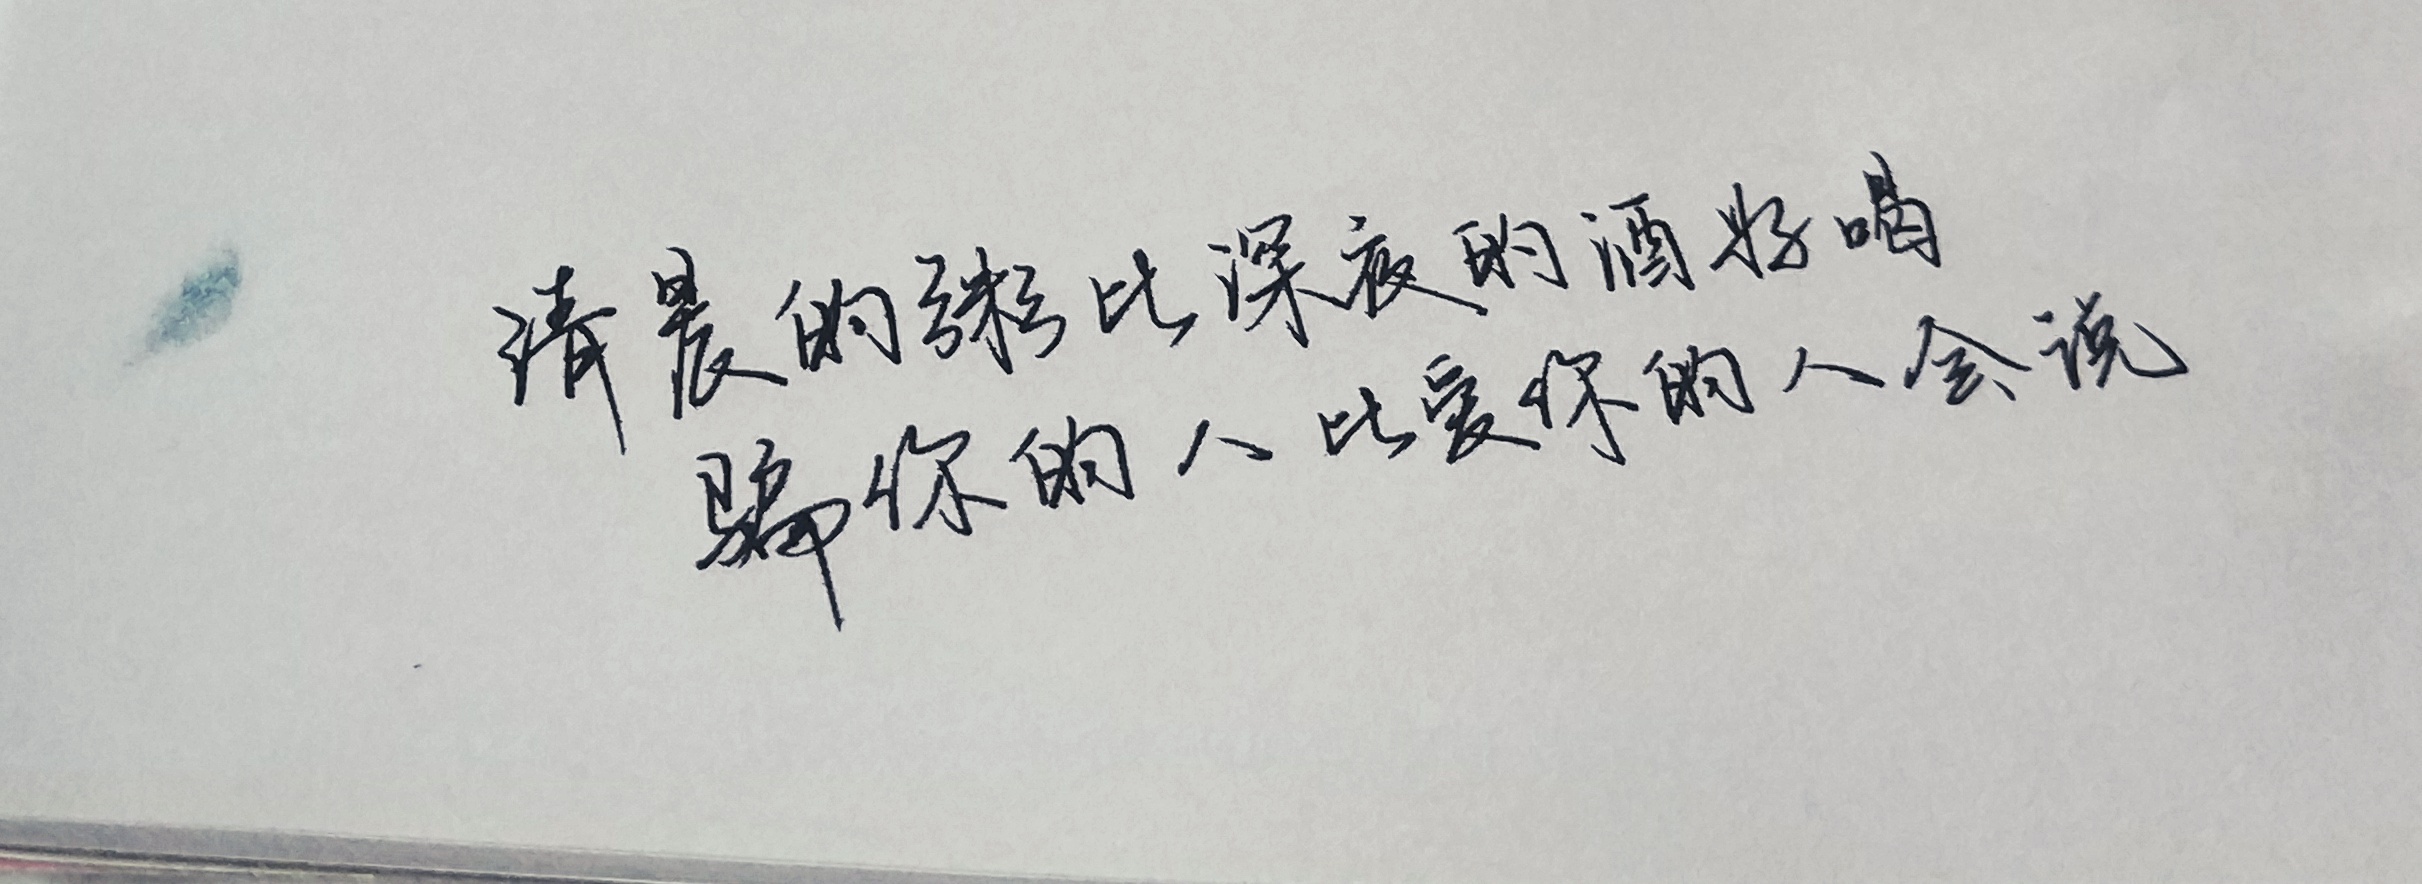 清晨的粥比深夜的酒好喝
骗你的人比爱你的人会说